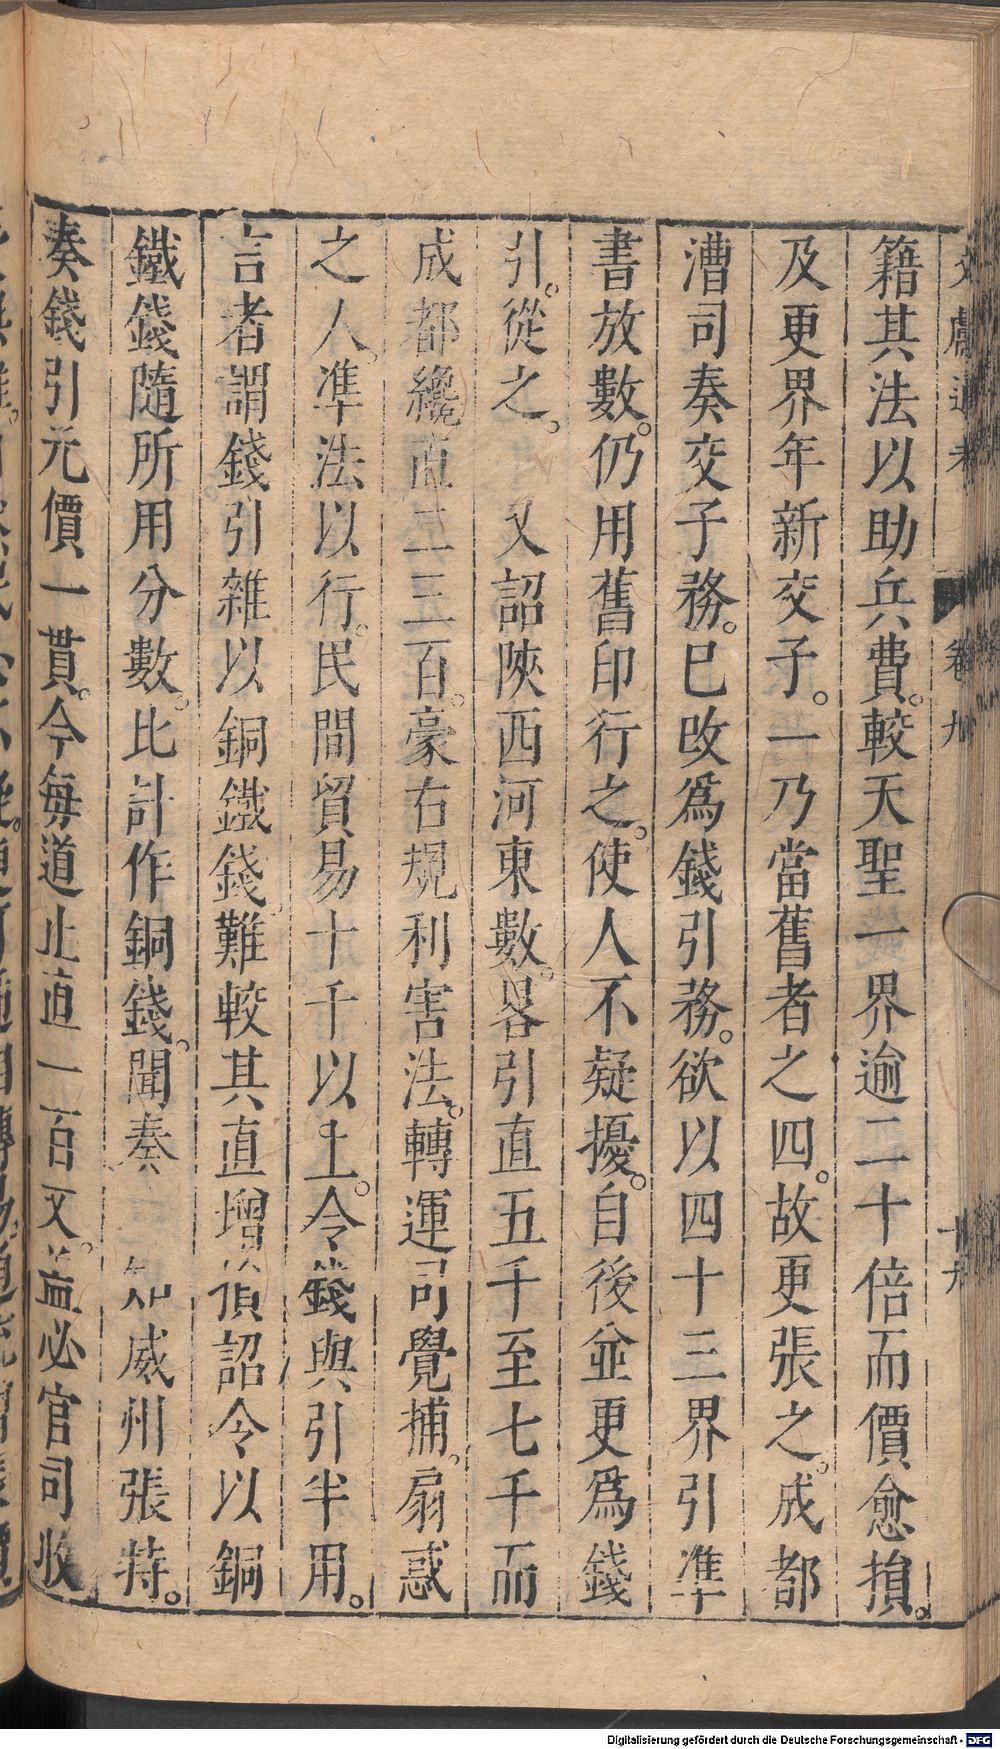 文獻通考 卷九 十九
籍其法以助兵費。較天聖一界逾二十倍而價愈損。
及更界年新交子。一乃當舊者之四。故更張之。成都
漕司奏交子務。已改爲錢引務。欲以四十三界引準
書放數。仍用舊印行之。使人不疑擾。自後並更爲錢
引。從之。又詔陝西河東數。畧引直五千至七千而
成都纔直二三百。豪右規利害法。轉運司覺捕。扇惑
之人。準法以行。民間貿易十千以上。令錢與引半用。
言者謂錢引雜以銅鐵錢難較其直增損詔令以銅
鐵錢隨所用分數。比計作銅錢。聞奏 知威州張特。
奏錢引元價一貫。今每道止直一百文。蓋必官司收
Digitalisierung gefördert durch die Deutsche Forschungsgemeinschaft - DFG